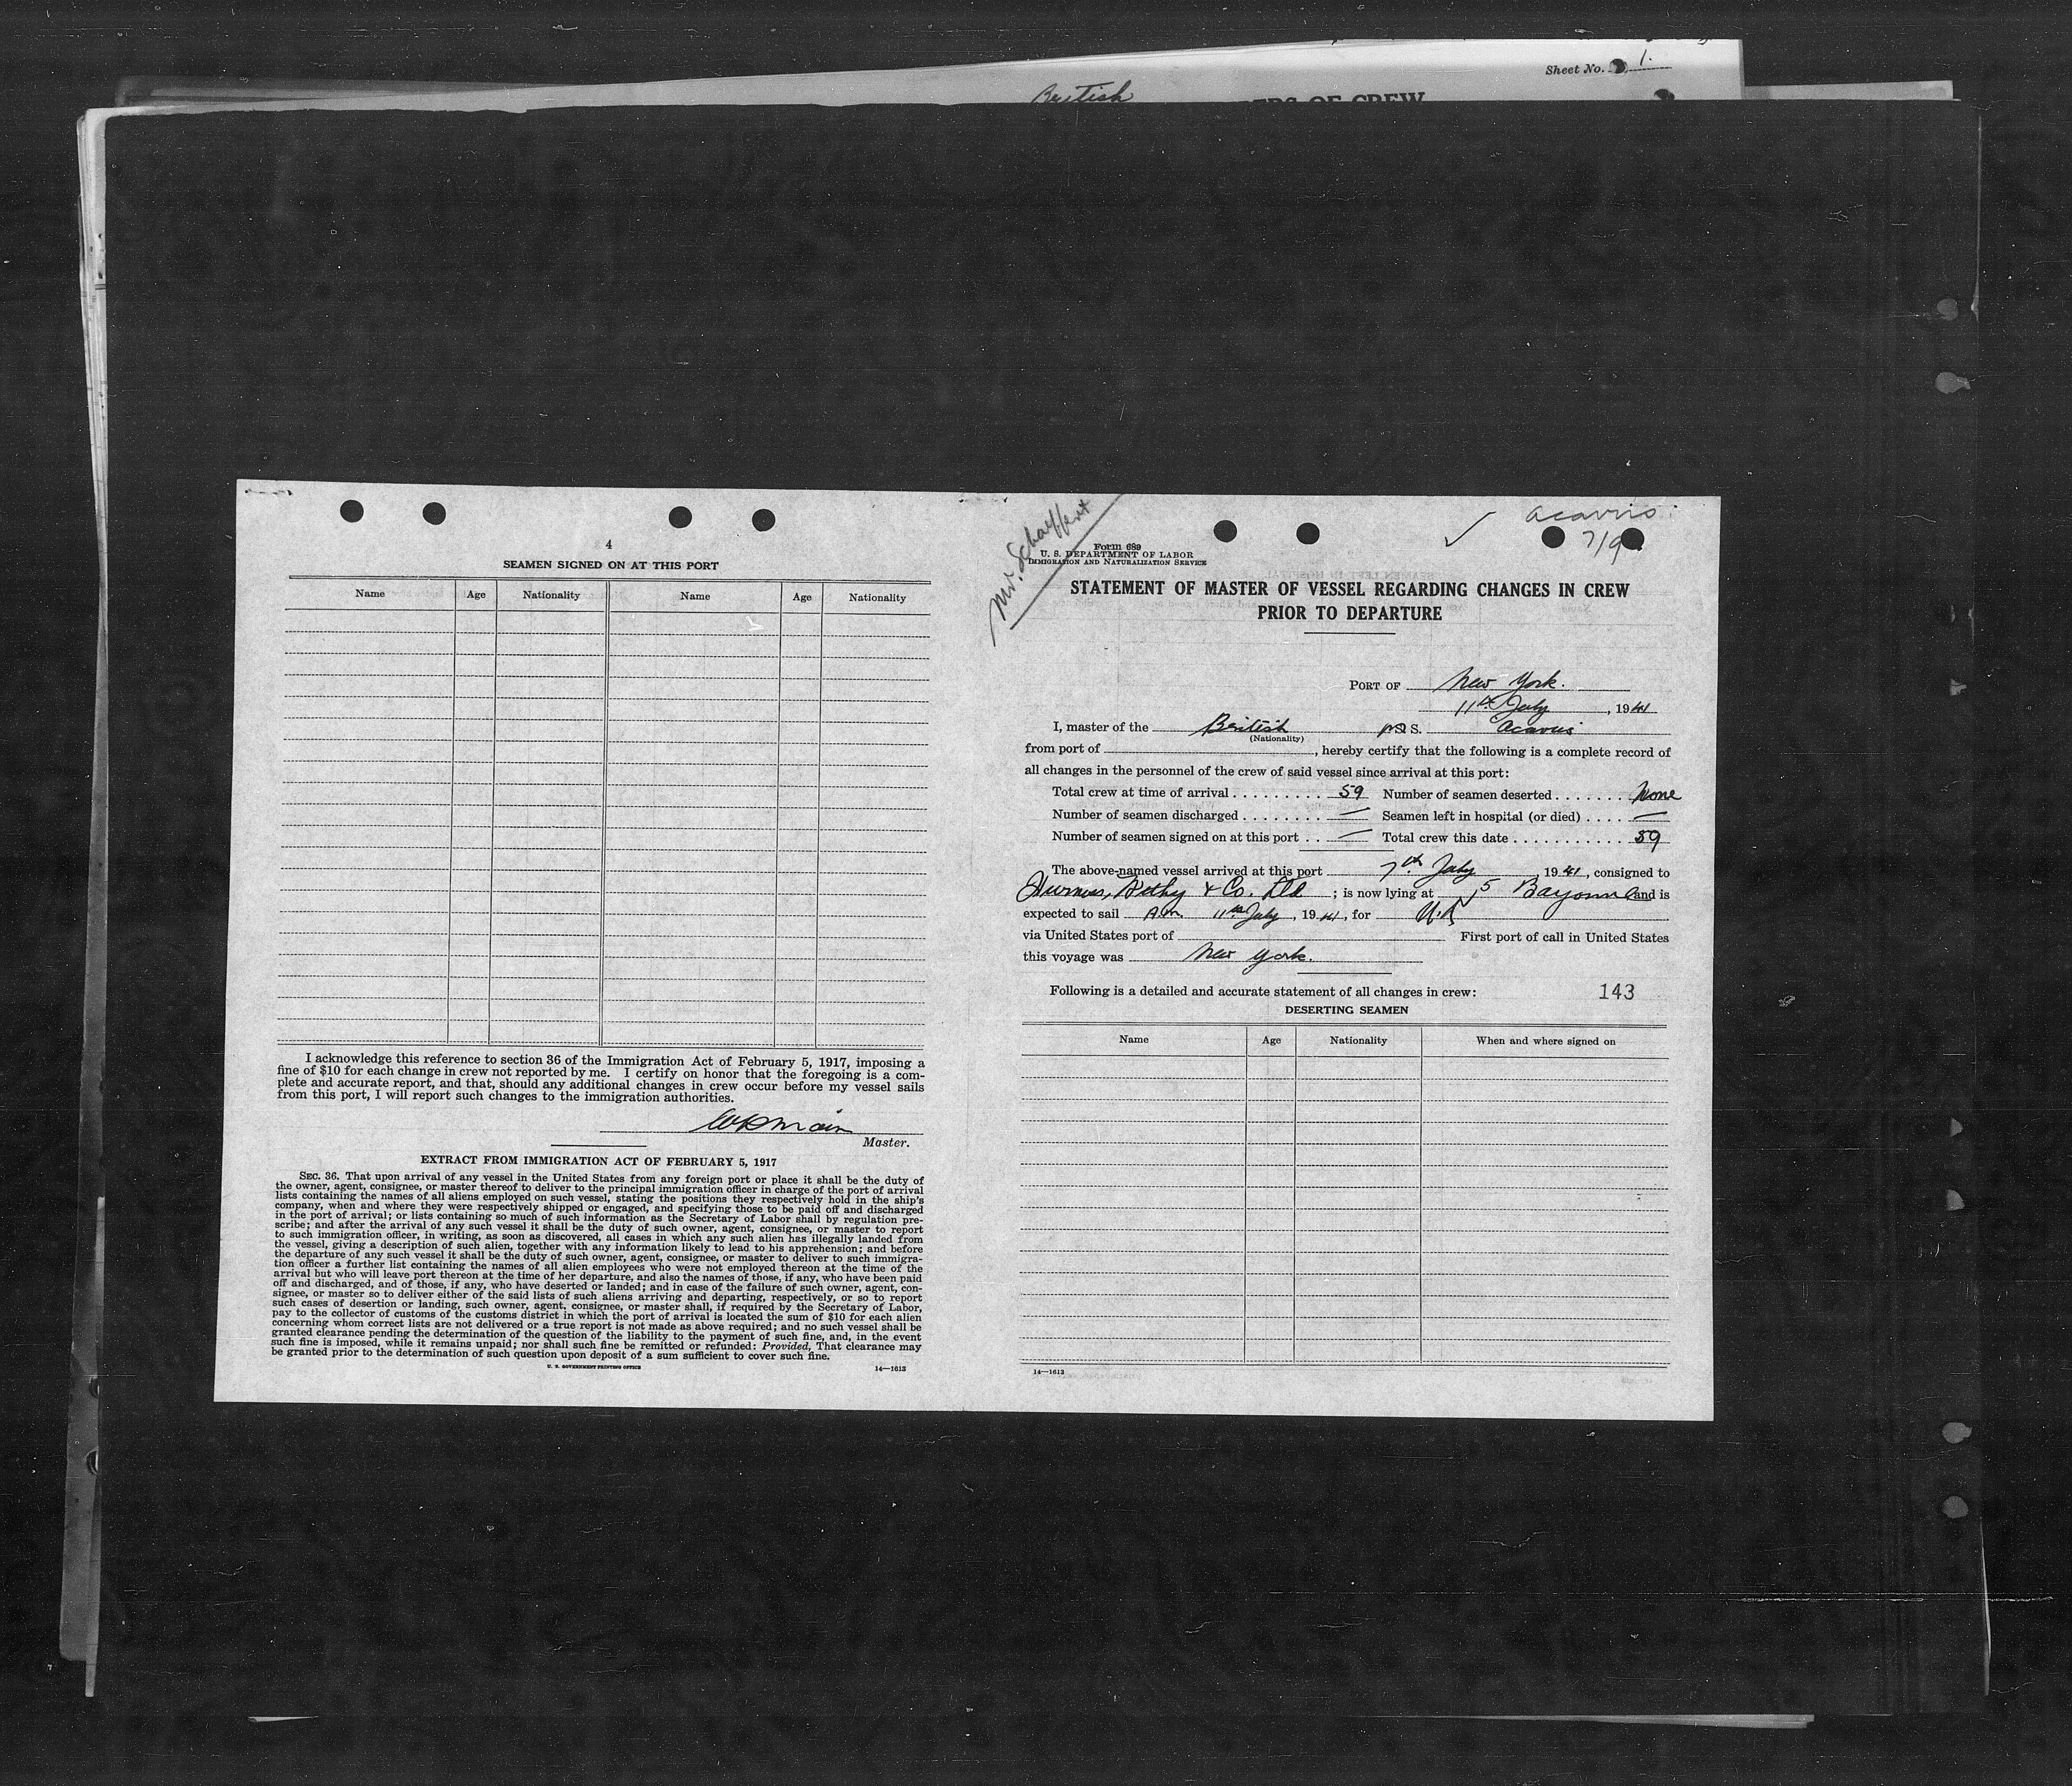 Sheet No. 1.
British
4
SEAMEN SIGNED ON AT THIS PORT
Name Age Nationality Name Age Nationality
I acknowledge this reference to section 36 of the Immigration Act of February 5, 1917, imposing a
fine of $10 for each change in crew not reported by me. I certify on honor that the foregoing is a com-
plete and accurate report, and that, should any additional changes in crew occur before my vessel sails
from this port, I will report such changes to the immigration authorities.
Master.
EXTRACT FROM IMMIGRATION ACT OF FEBRUARY 5, 1917
SEC. 36. That upon arrival of any vessel in the United States from any foreign port or place it shall be the duty of
the owner, agent, consignee, or master thereof to deliver to the principal immigration officer in charge of the port of arrival
lists containing the names of all aliens employed on such vessel, stating the positions they respectively hold in the ship's
company, when and where they were respectively shipped or engaged, and specifying those to be paid off and discharged
in the port of arrival; or lists containing so much of such information as the Secretary of Labor shall by regulation pre-
scribe; and after the arrival of any such vessel it shall be the duty of such owner, agent, consignee, or master to report
to such immigration officer, in writing, as soon as discovered, all cases in which any such alien has illegally landed from
the vessel, giving a description of such alien, together with any information likely to lead to his apprehension; and before
the departure of any such vessel it shall be the duty of such owner, agent, consignee, or master to deliver to such immigra-
tion officer a further list containing the names of all alien employees who were not employed thereon at the time of the
arrival but who will leave port thereon at the time of her departure, and also the names of those, if any, who have been paid
off and discharged, and of those, if any, who have deserted or landed; and in case of the failure of such owner, agent, con-
signee, or master so to deliver either of the said lists of such aliens arriving and departing, respectively, or so to report
such cases of desertion or landing, such owner, agent, consignee, or master shall, if required by the Secretary of Labor,
pay to the collector of customs of the customs district in which the port of arrival is located the sum of $10 for each alien
concerning whom correct lists are not delivered or a true report is not made as above required; and no such vessel shall be
granted clearance pending the determination of the question of the liability to the payment of such fine, and, in the event
such fine is imposed, while it remains unpaid; nor shall such fine be remitted or refunded: Provided, That clearance may
be granted prior to the determination of such question upon deposit of a sum sufficient to cover such fine.
U. S. GOVERNMENT PRINTING OFFICE 14—1613
Acavus
7/9
Mr.
Form 689
U. S. DEPARTMENT OF LABOR
IMMIGRATION AND NATURALIZATION SERVICE
STATEMENT OF MASTER OF VESSEL REGARDING CHANGES IN CREW
PRIOR TO DEPARTURE
PORT OF New York.
11th July, 1941
I, master of the British S. Acavus
(Nationality)
from port of , hereby certify that the following is a complete record of
all changes in the personnel of the crew of said vessel since arrival at this port:
Total crew at time of arrival 59 Number of seamen deserted None
Number of seamen discharged — Seamen left in hospital (or died) —
Number of seamen signed on at this port — Total crew this date 59
The above-named vessel arrived at this port 7th July 1941, consigned to
Furness, Withy & Co. Ltd ; is now lying at 5 Bayonne and is
expected to sail A.M. 11th July, 1941, for U.K
via United States port of First port of call in United States
this voyage was New York.
Following is a detailed and accurate statement of all changes in crew: 143
DESERTING SEAMEN
Name Age Nationality When and where signed on
14—1613